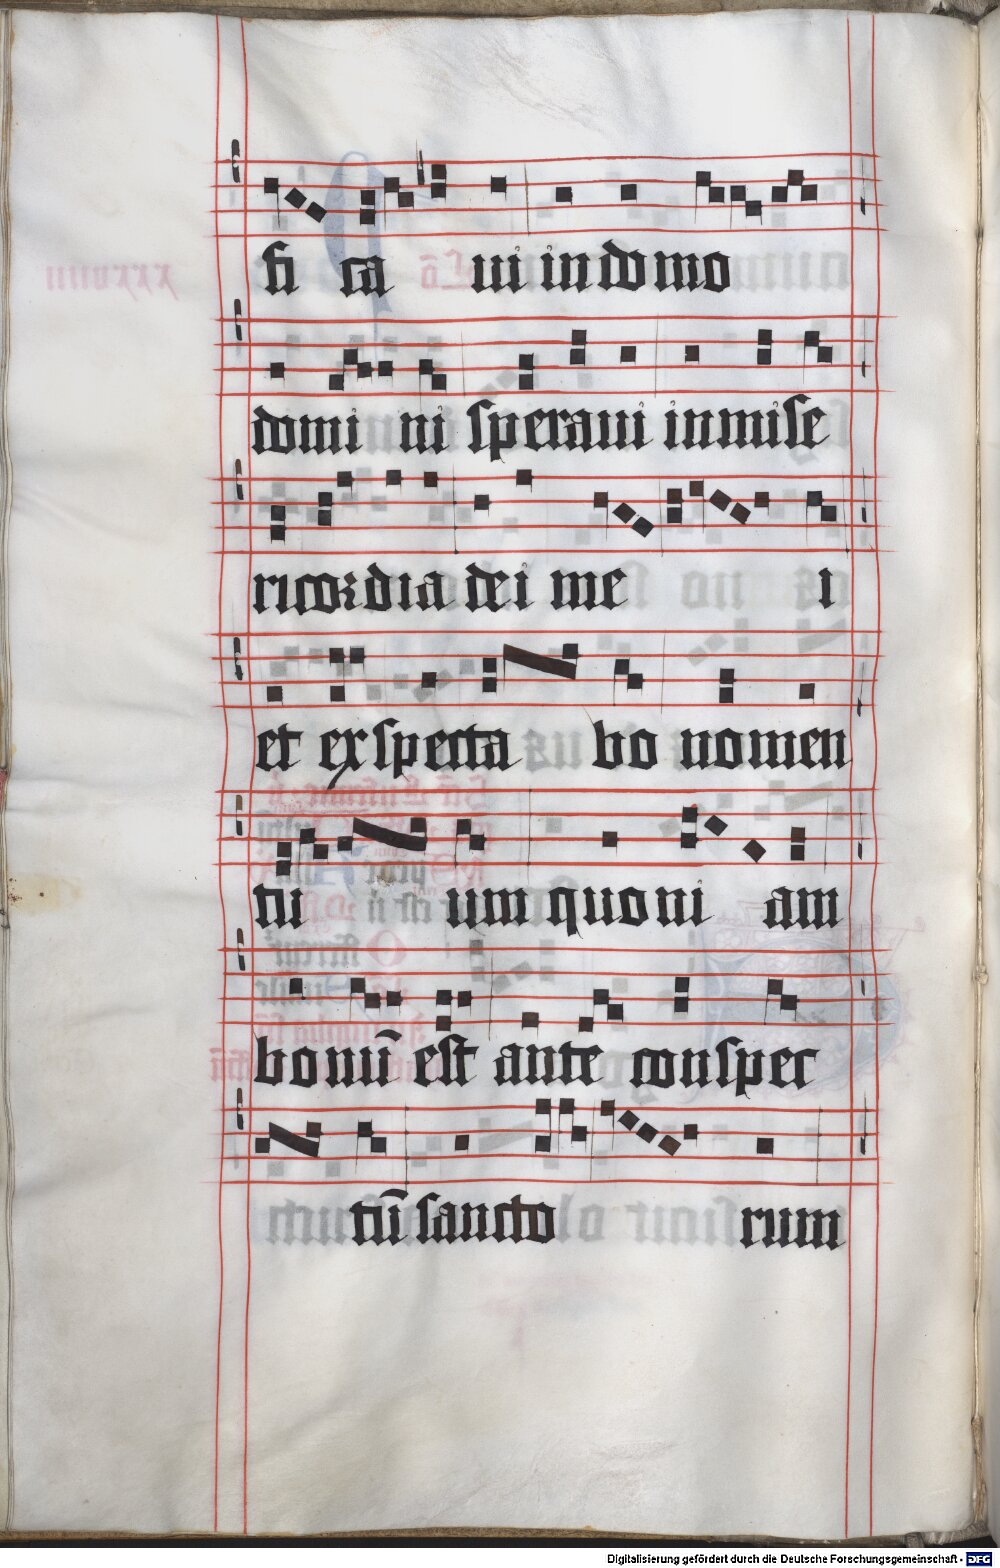 fi ca ui in domo
domi ni speraui in mise
ricordia dei me i
et exspecta bo nomen
tu um quoni am
bonū est ante conspec
tū sancto rum
Digitalisierung gefördert durch die Deutsche Forschungsgemeinschaft - DFG